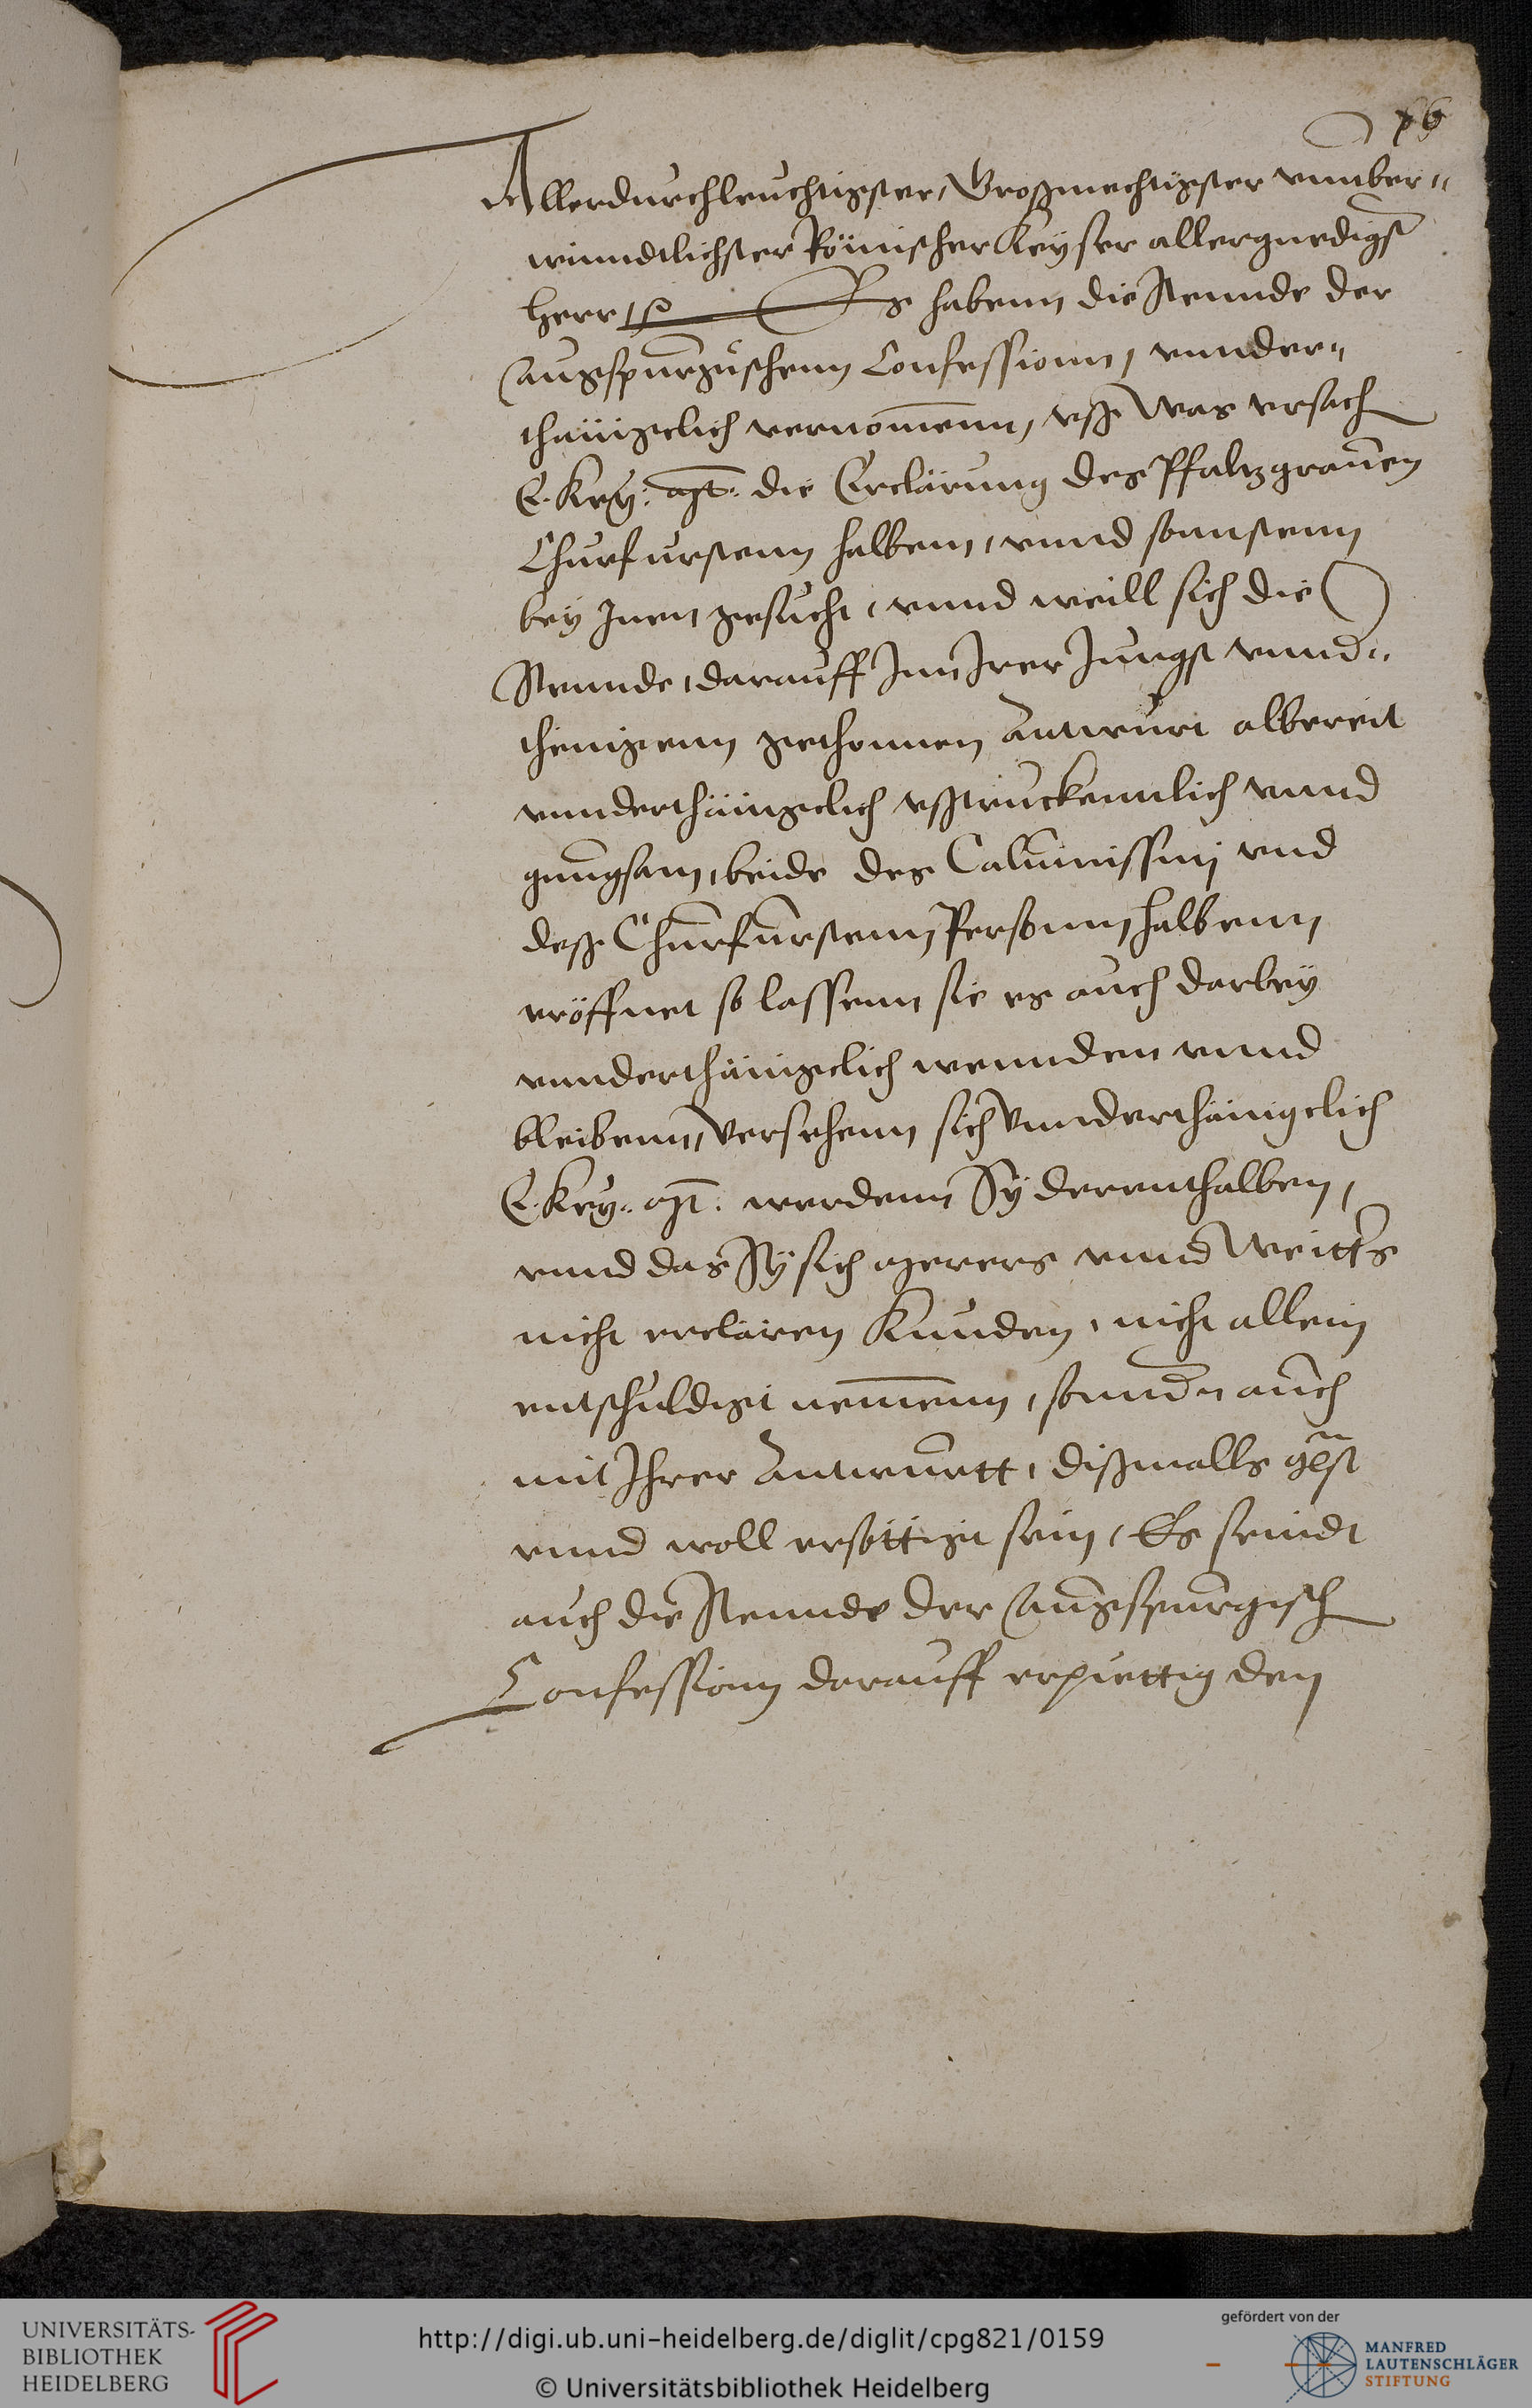 Allerdurchleuchtigster, Großmechtigster vnnber-
winndtlichster Römischer Keyser allergnedigst
Herr, Es habenn die Stennde der
Augspurgischenn Confessionn, vnnder-
thänigclich vernomenn, vß was vrsach
E. Key: Mt: die Erclärung des Pfaltzgrauen
Churfürstenn halbenn, vnnd sonnstenn
bey Inen gesucht, vnnd weill sich die
Stennde, darauff Inn Irer Jungst vnnd-
thenigenn gethonnen Antwurt albereit
vnnderthänigclich vßtruckennlich vnnd
gnungsam, beide des Caluinissmj vnd
deß Churfurstenn Personn halbenn
eröffnet so lassenn sie es auch darbey
vnnderthänigclich wennden vnnd
bleibenn, Versehenn sich vnnderthänigclich
E. Key. Mt. werdenn Sy derennthalben,
vnnd das Sy sich merers vnnd Weitters
nicht erclären Kunden, nicht allein
entschuldigt nemenn, sonndern auch
mit Ihrer Antwurtt, dißmalls gst
vnnd woll ersöttigt sein, Es seindt
auch die Stennde der Augspurgisch
Confessionn darauff erpiettig den
UNIVERSITÄTS-
BIBLIOTHEK
HEIDELBERG
http://digi.ub.uni-heidelberg.de/diglit/cpg821/0159
© Universitätsbibliothek Heidelberg
gefördert von der
MANFRED
LAUTENSCHLÄGER
STIFTUNG